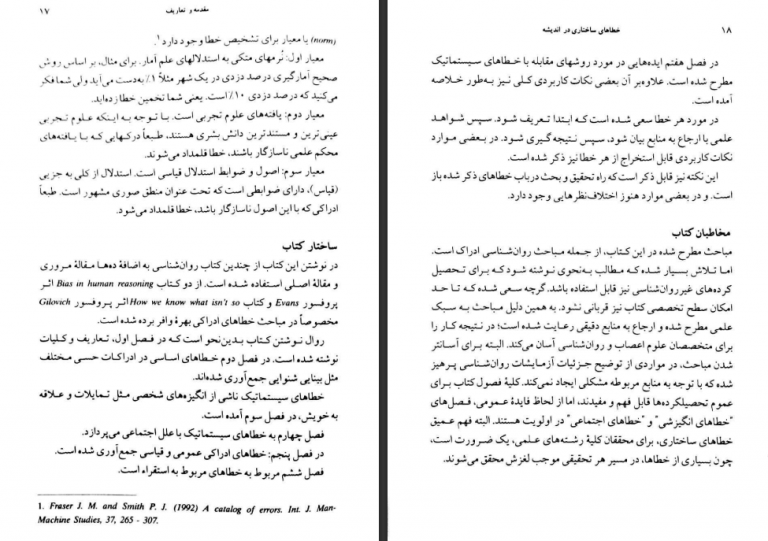 مقدمه و تعاریف
۱۷
(norm) یا معیار برای تشخیص خطا وجود دارد ۱.
معیار اول: نُرمهای متکی به استدلالهای علم آمار. برای مثال، بر اساس روش
صحیح آمارگیری درصد دزدی در یک شهر مثلاً ۱٪ به‌دست می‌آید ولی شما فکر
می‌کنید که درصد دزدی ۱۰٪ است. یعنی شما تخمین خطا زده‌اید.
معیار دوم: یافته‌های علوم تجربی است. با توجه به اینکه علوم تجربی
عینی‌ترین و مستندترین دانش بشری هستند، طبعاً درکهایی که با یافته‌های
محکم علمی ناسازگار باشند، خطا قلمداد می‌شوند.
معیار سوم: اصول و ضوابط استدلال قیاسی است. استدلال از کلی به جزیی
(قیاس)، دارای ضوابطی است که تحت عنوان منطق صوری مشهور است. طبعاً
ادراکی که با این اصول ناسازگار باشد، خطا قلمداد می‌شود.
ساختار کتاب
در نوشتن این کتاب از چندین کتاب روان‌شناسی به اضافهٔ ده‌ها مقالهٔ مروری
و مقالهٔ اصلی استفاده شده است. از دو کتاب Bias in human reasoning اثر
پروفسور Evans و کتاب How we know what isn't so اثر پروفسور Gilovich
مخصوصاً در مباحث خطاهای ادراکی بهرهٔ وافر برده شده است.
روال نوشتن کتاب بدین‌نحو است که در فصل اول، تعاریف و کلیات
نوشته شده است. در فصل دوم خطاهای اساسی در ادراکات حسی مختلف
مثل بینایی شنوایی جمع‌آوری شده‌اند.
خطاهای سیستماتیک ناشی از انگیزه‌های شخصی مثل تمایلات و علاقه
به خویش، در فصل سوم آمده است.
فصل چهارم به خطاهای سیستماتیک با علل اجتماعی می‌پردازد.
در فصل پنجم: خطاهای ادراکی عمومی و قیاسی جمع‌آوری شده است.
فصل ششم مربوط به خطاهای مربوط به استقراء است.
1. Fraser J. M. and Smith P. J. (1992) A catalog of errors. Int. J. Man-
Machine Studies, 37, 265 - 307.
۱۸
خطاهای ساختاری در اندیشه
در فصل هفتم ایده‌هایی در مورد روشهای مقابله با خطاهای سیستماتیک
مطرح شده است. علاوه‌بر آن بعضی نکات کاربردی کلی نیز به‌طور خلاصه
آمده است.
در مورد هر خطا سعی شده است که ابتدا تعریف شود. سپس شواهد
علمی با ارجاع به منابع بیان شود، سپس نتیجه‌گیری شود. در بعضی موارد
نکات کاربردی قابل استخراج از هر خطا نیز ذکر شده است.
این نکته نیز قابل ذکر است که راه تحقیق و بحث درباب خطاهای ذکر شده باز
است. و در بعضی موارد هنوز اختلاف‌نظرهایی وجود دارد.
مخاطبان کتاب
مباحث مطرح شده در این کتاب، از جمله مباحث روان‌شناسی ادراک است.
اما تلاش بسیار شده که مطالب به‌نحوی نوشته شود که برای تحصیل
کرده‌های غیرروان‌شناسی نیز قابل استفاده باشد. گرچه سعی شده که تا حد
امکان سطح تخصصی کتاب نیز قربانی نشود. به همین دلیل مباحث به سبک
علمی مطرح شده و ارجاع به منابع دقیقی رعایت شده است؛ در نتیجه کار را
برای متخصصان علوم اعصاب و روان‌شناسی آسان می‌کند. البته برای آسانتر
شدن مباحث، در مواردی از توضیح جزئیات آزمایشات روان‌شناسی پرهیز
شده که با توجه به منابع مربوطه مشکلی ایجاد نمی‌کند. کلیهٔ فصول کتاب برای
عموم تحصیلکرده‌ها قابل فهم و مفیدند، اما از لحاظ فایدهٔ عمومی، فصل‌های
"خطاهای انگیزشی" و "خطاهای اجتماعی" در اولویت هستند. البته فهم عمیق
خطاهای ساختاری، برای محققان کلیهٔ رشته‌های علمی، یک ضرورت است،
چون بسیاری از خطاها، در مسیر هر تحقیقی موجب لغزش محقق می‌شوند.